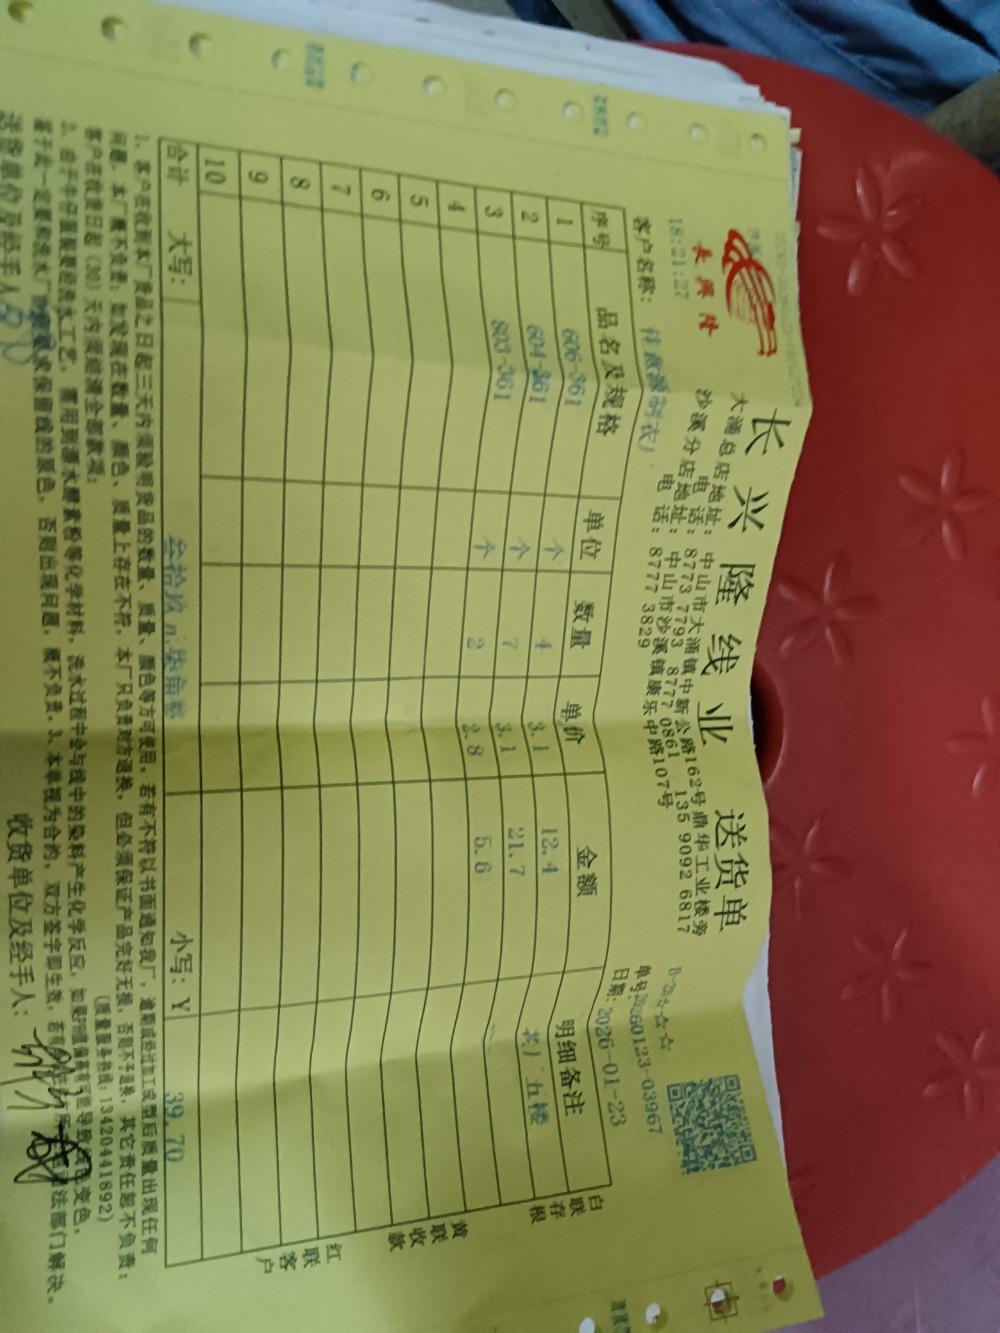 长兴隆
长兴隆线业 送货单
大涌总店地址：中山市大涌镇中新公路162号鼎华工业楼旁
电话：8773 7793 8777 0861 135 9092 6817
沙溪分店地址：中山市沙溪镇康乐中路107号
电话：8777 3829
18:21:27
单号:20260123-03967
客户名称：
日期：2026-01-23
序号 品名及规格 单位 数量 单价 金额 明细备注
1 606-361 个 4 3.1 12.4
2 604-361 个 7 3.1 21.7 五楼
3 803-361 个 2 2.8 5.6
4
5
6
7
8
9
10
合计 大写： 叁拾玖元柒角整 小写：￥ 39.70
白联存根
黄联收款
红联客户
1、客户在收到本厂货品之日起三天内须验明货品的数量、质量、颜色等方可使用，若有不符以书面通知我厂，逾期或经过加工成型后质量出现任何
问题，本厂概不负责；如发现在数量、颜色、质量上存在不符，本厂只负责对方退换，但必须保证产品完好无损，否则不予退换，其它责任恕不负责；
客户在收货日起（30）天内须结清全部款项； （质量服务热线：13420441892）
2、由于牛仔服装要经洗水工艺，需用到漂水酵素粉等化学材料，洗水过程中会与线中的染料产生化学反应，如果PH值偏高有可能导致 变色，
鉴于此一定要和洗水厂 要求保留线的原色，否则出现问题，概不负责。3、本单视为合约，双方签字即生效，若有 法部门解决。
送货单位及经手人： 收货单位及经手人：